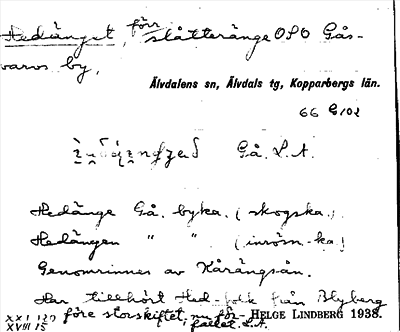 Hedänget, förr slåtteränge OSO Gås-
varvs by,
Älvdalens sn, Älvdals tg, Kopparbergs län.
66 G102
Gå. L.A.
Hedänge Gå. byka. (skogska.)
Hedängen " " (inrösn.-ka.)
Genomrinnes av Kåråingsån.
Har tillhört Hed-folk från Blyberg
före storskiftet, nu för- HELGE LINDBERG 1938.
XVIII 15 fallet. L.A.